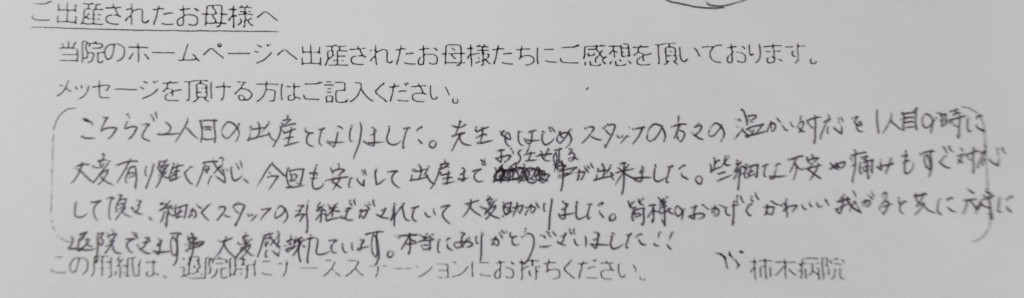 ご出産されたお母様へ
当院のホームページへ出産されたお母様たちにご感想を頂いております。
メッセージを頂ける方はご記入ください。
こちらで2人目の出産となりました。先生をはじめスタッフの方々の温かい対応を1人目の時に
大変有り難く感じ、今回も安心して出産までお任せする事が出来ました。些細な不安や痛みもすぐ対応
して頂き、細かくスタッフの引継ぎがされていて大変助かりました。皆様のおかげでかわいい我が子と共に元気に
退院できます事大変感謝しています。本当にありがとうございました!!
この用紙は、退院時にナースステーションにお持ちください。 柿木病院